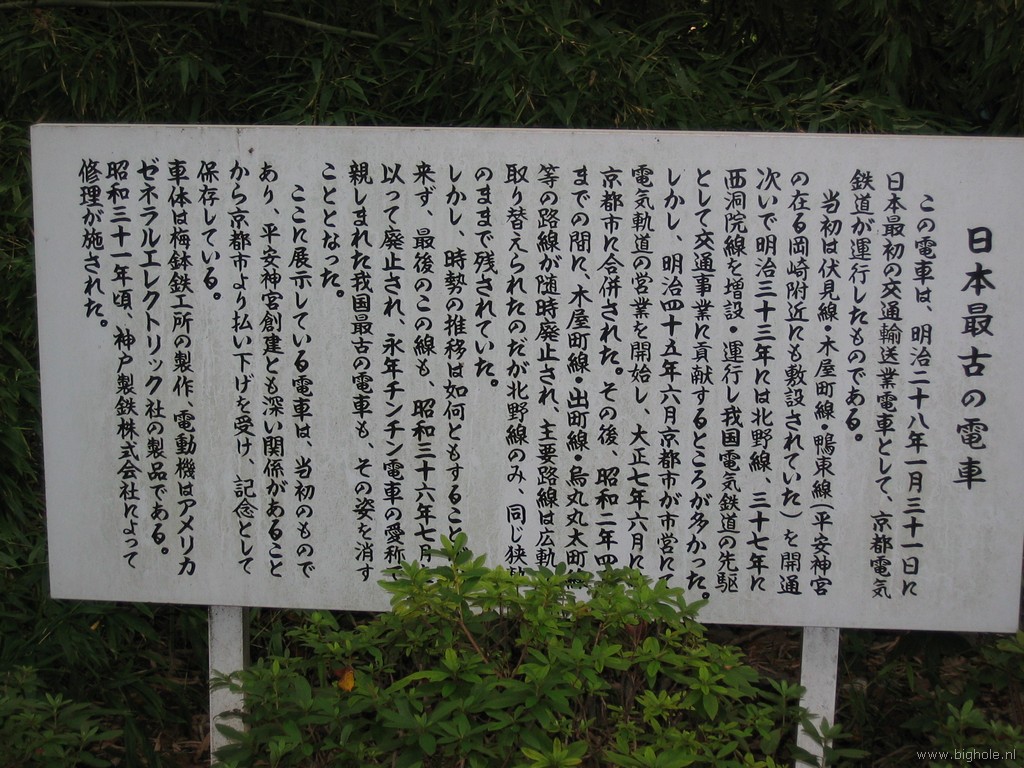 日本最古の電車
この電車は、明治二十八年一月三十一日に
日本最初の交通輸送業電車として、京都電気
鉄道が運行したものである。
当初は伏見線・木屋町線・鴨東線(平安神宮
の在る岡崎附近にも敷設されていた)を開通
次いで明治三十三年には北野線、三十七年に
西洞院線を増設・運行し我国電気鉄道の先駆
として交通事業に貢献するところが多かった。
しかし、明治四十五年六月京都市が市営にて
電気軌道の営業を開始し、大正七年六月に
京都市に合併された。その後、昭和二年四
までの間に、木屋町線・出町線・烏丸丸太町線
等の路線が随時廃止され、主要路線は広軌
取り替えられたのだが北野線のみ、同じ狭軌
のままで残されていた。
しかし、時勢の推移は如何ともすること
来ず、最後のこの線も、昭和三十六年七月
以って廃止され、永年チンチン電車の愛称で
親しまれた我国最古の電車も、その姿を消す
こととなった。
ここに展示している電車は、当初のもので
あり、平安神宮創建とも深い関係があること
から京都市より払い下げを受け、記念として
保存している。
車体は梅鉢鉄工所の製作、電動機はアメリカ
ゼネラルエレクトリック社の製品である。
昭和三十一年頃、神戸製鉄株式会社によって
修理が施された。
www.bighole.nl